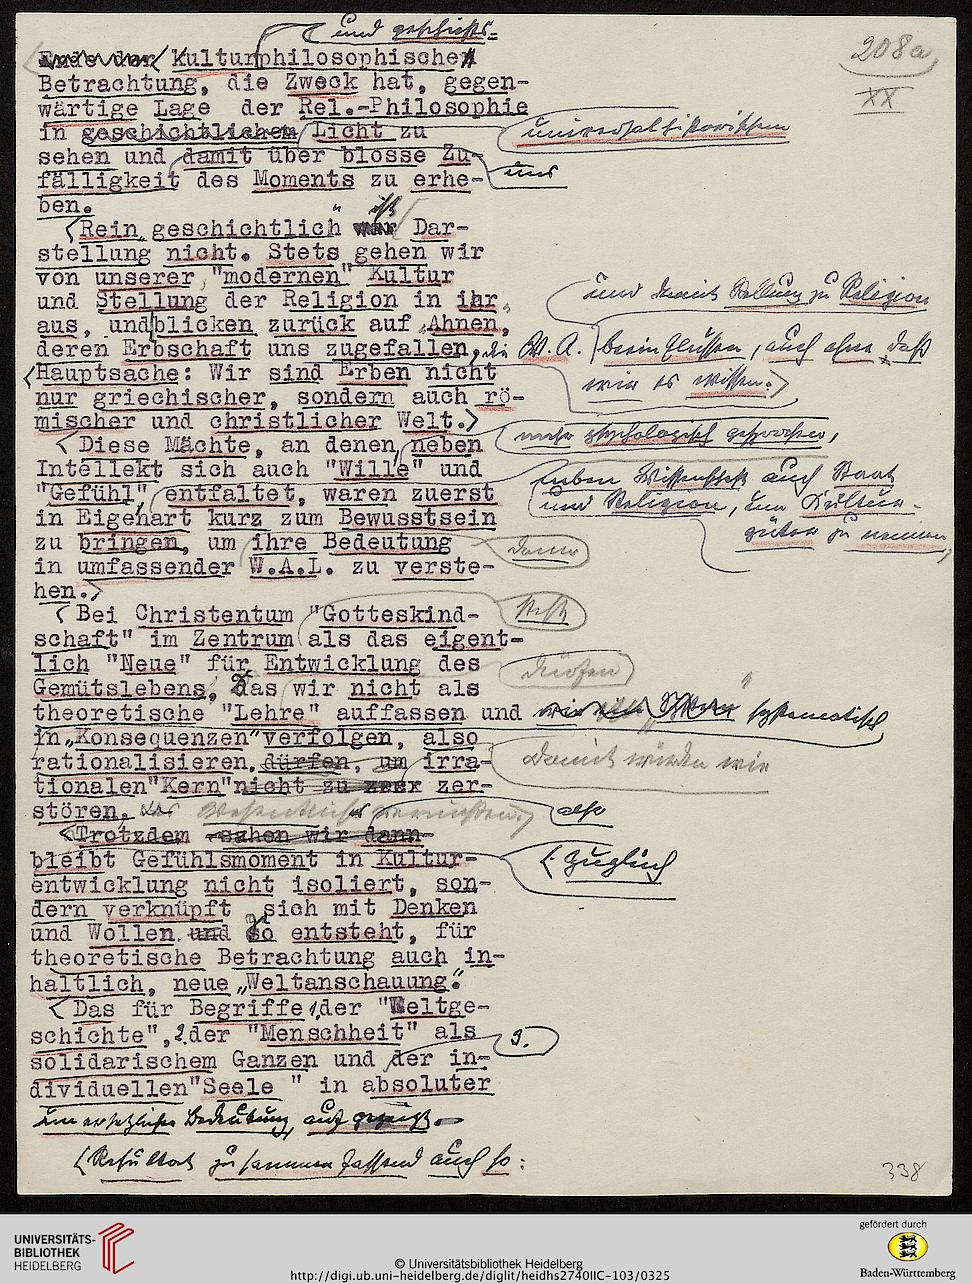 und geschichts=
208a
XX
Kulturphilosophischen
Betrachtung, die Zweck hat, gegen-
wärtige Lage der Rel.-Philosophie
in geschichtlichem Licht zu
universalhistorischem
sehen und damit über blosse Zu-
fälligkeit des Moments zu erhe-
uns
ben.
Rein "geschichtlich" ist Dar-
stellung nicht. Stets gehen wir
von unserer "modernen" Kultur
und Stellung der Religion in ihr
und damit Stellung zu Religion
aus, und blicken zurück auf "Ahnen,
deren Erbschaft uns zugefallen, die W.A. beeinflussen, auch ohne daß
wir es wissen.
Hauptsache: Wir sind Erben nicht
nur griechischer, sondern auch rö-
mischer und christlicher Welt.
Diese Mächte, an denen neben
mehr psychologisch gesprochen,
Intellekt sich auch "Wille" und
neben Wissenschaft auch Staat
"Gefühl", entfaltet, waren zuerst
und Religion, um Kultur-
in Eigenart kurz zum Bewusstsein
güter zu nennen,
zu bringen, um ihre Bedeutung
dann
in umfassender W.A.L. zu verste-
hen.
Bei Christentum "Gotteskind-
steht
schaft" im Zentrum als das eigent-
lich "Neue" für Entwicklung des
dürfen
Gemütslebens, das wir nicht als
theoretische "Lehre" auffassen und systematisch
in "Konsequenzen" verfolgen, also
rationalisieren, dürfen, um irra-
damit würden wir
tionalen "Kern" nicht zu zer-
stören.
also
Trotzdem sahen wir dann
bleibt Gefühlsmoment in Kultur-
zugleich
entwicklung nicht isoliert, son-
dern verknüpft sich mit Denken
und Wollen, und so entsteht, für
theoretische Betrachtung auch in-
haltlich, neue "Weltanschauung".
Das für Begriffe 1. der "Weltge-
schichte", 2. der "Menschheit" als
3.
solidarischem Ganzen und der in-
dividuellen "Seele " in absoluter
unersetzlicher Bedeutung, aufgezeigt.
Resultat zusammenfassend auch so:
338
UNIVERSITÄTS-
BIBLIOTHEK
HEIDELBERG
© Universitätsbibliothek Heidelberg
http://digi.ub.uni-heidelberg.de/diglit/heidhs2740IIC-103/0325
gefördert durch
Baden-Württemberg